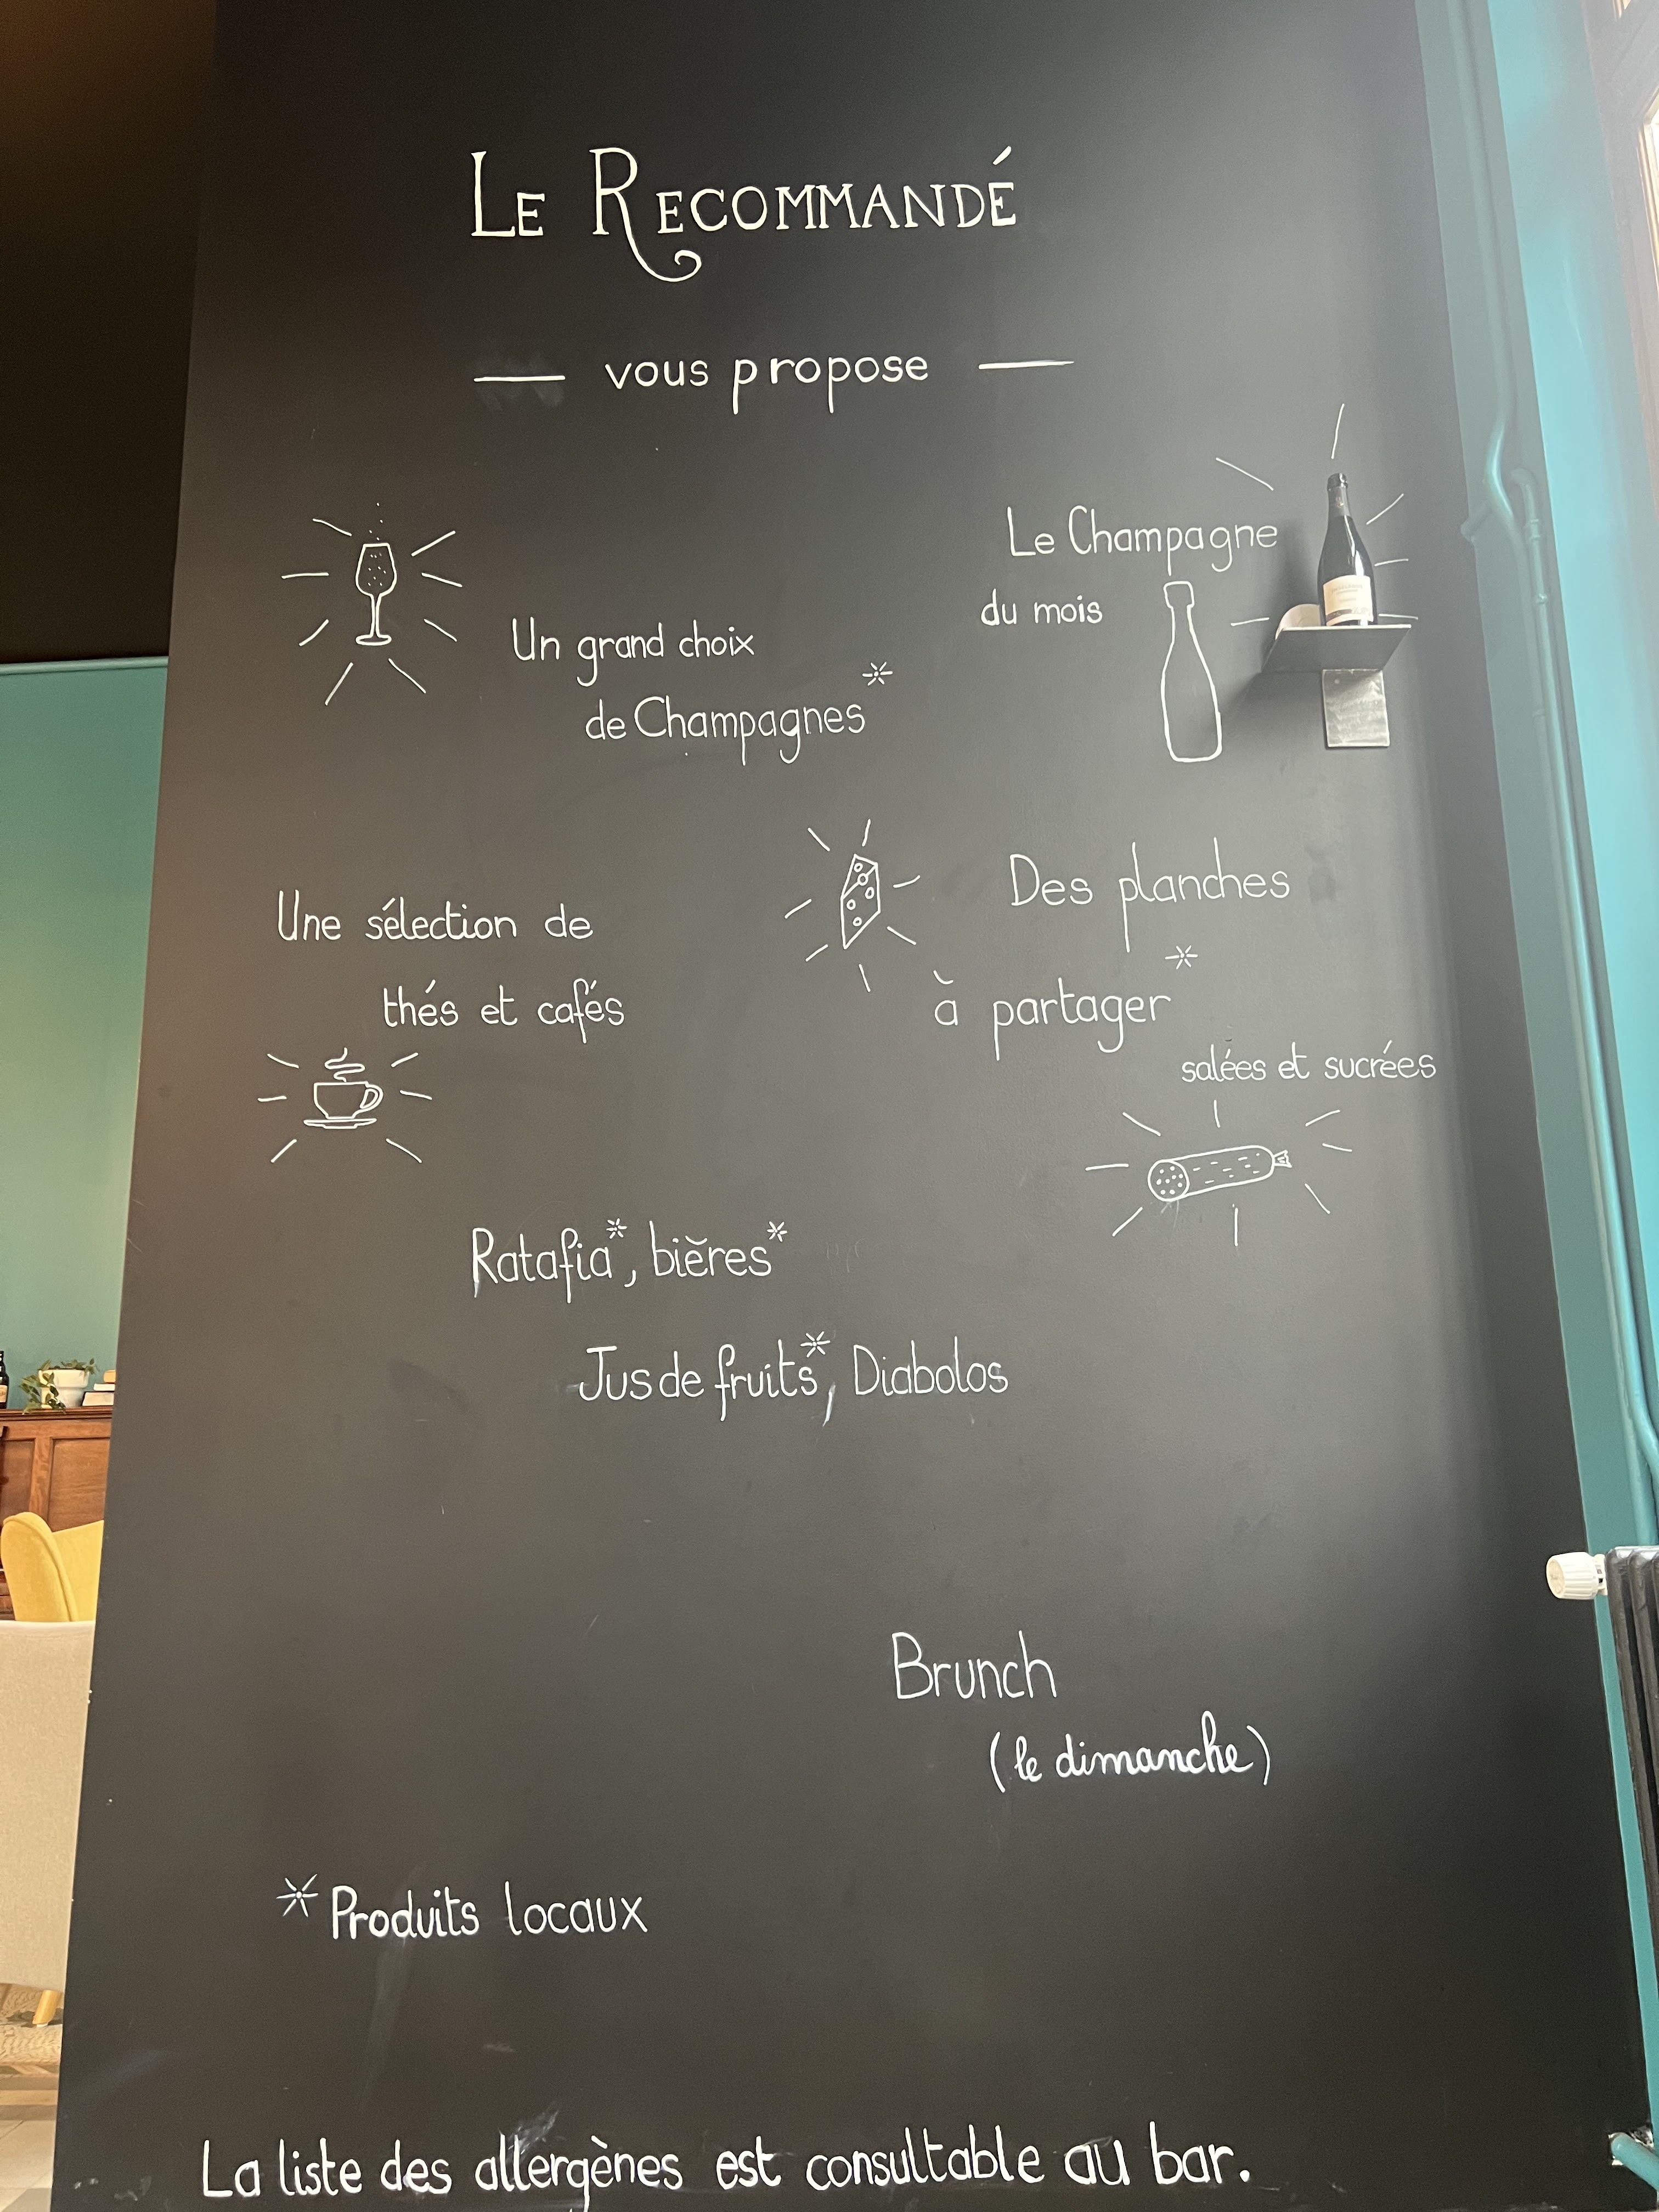 LE RECOMMANDÉ
— vous propose —
Un grand choix
de Champagnes*
Le Champagne
du mois
Une sélection de
thés et cafés
Des planches
à partager*
salées et sucrées
Ratafia*, bières*
Jus de fruits*, Diabolos
Brunch
(le dimanche)
* Produits locaux
La liste des allergènes est consultable au bar.